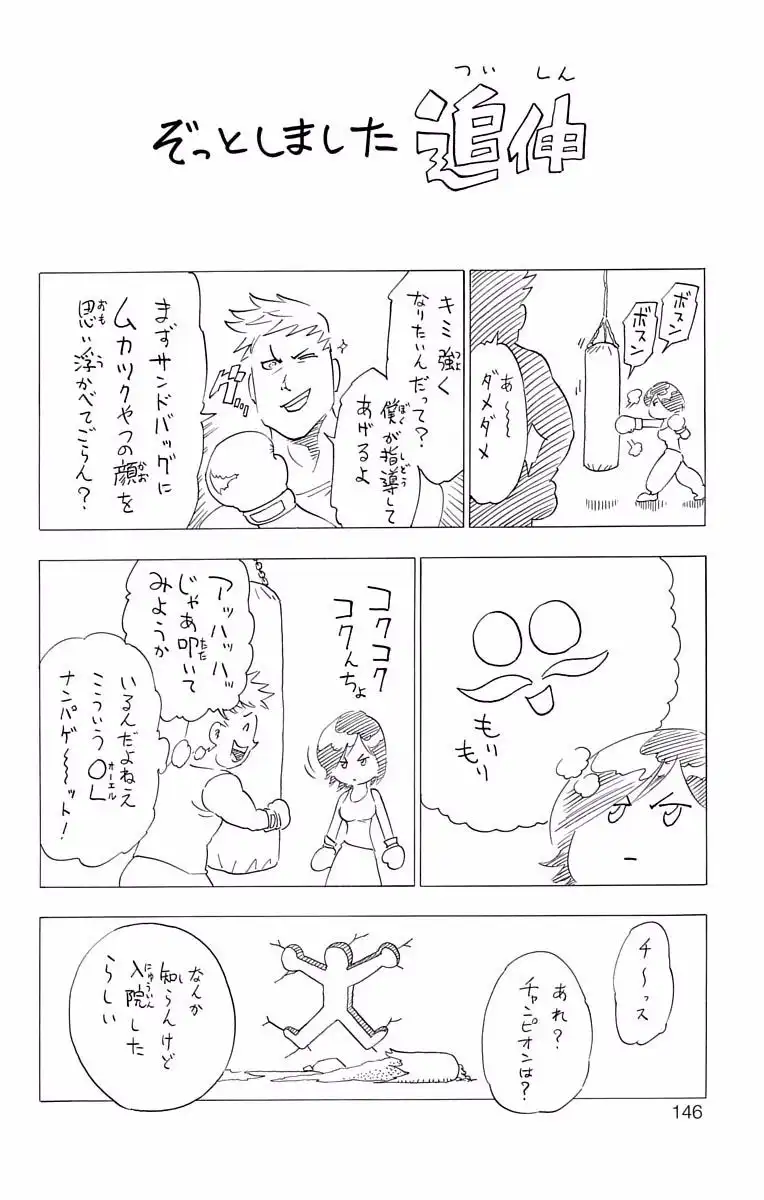 ぞっとしました 追伸
ついしん
ボスン
ボスン
あ〜〜
ダメダメ
キミ強く
なりたいんだって？
僕が指導して
あげるよ
まずサンドバッグに
ムカツクやつの顔を
思い浮かべてごらん？
もり
もり
コクコク
コクんちょ
アッハッハッ
じゃあ叩いて
みようか
いるんだよねえ
こういうOL
オーエル
ナンパゲ〜〜ット！
チ〜っス
あれ？
チャンピオンは？
なんか
知らんけど
入院した
らしい
146